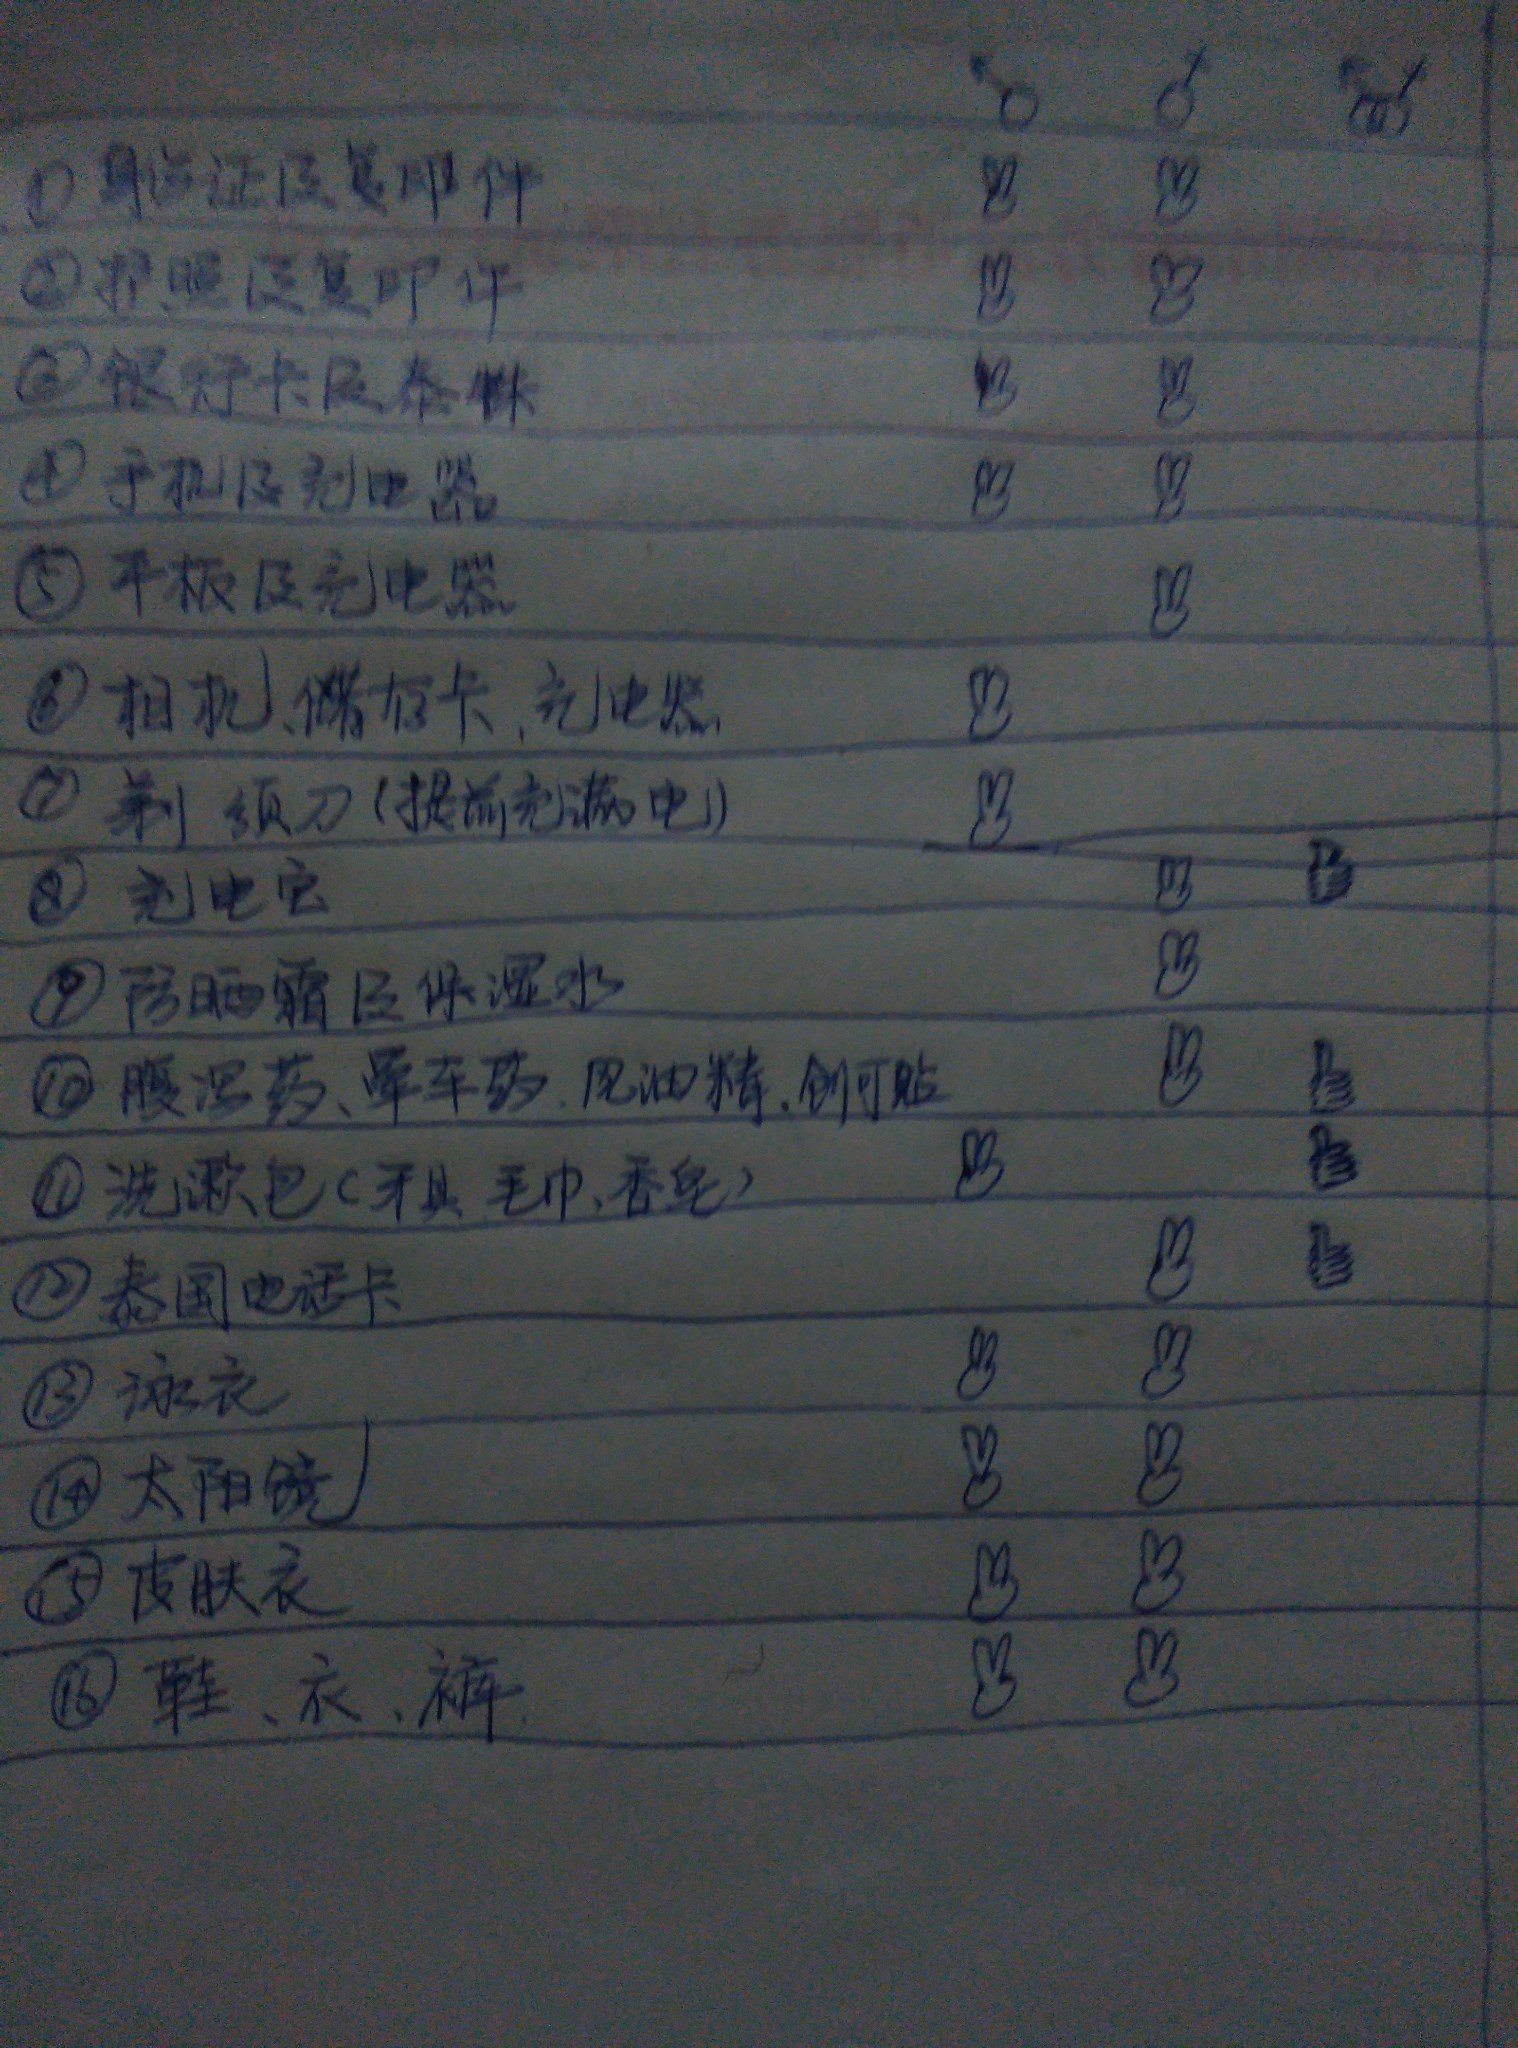 ① 身份证及复印件
② 护照及复印件
③ 银行卡及泰铢
④ 手机及充电器
⑤ 平板及充电器
⑥ 相机、储存卡、充电器
⑦ 剃须刀（提前充满电）
⑧ 充电宝
⑨ 防晒霜及保湿水
⑩ 腹泻药、晕车药、风油精、创可贴
⑪ 洗漱包（牙具、毛巾、香皂）
⑫ 泰国电话卡
⑬ 泳衣
⑭ 太阳镜
⑮ 皮肤衣
⑯ 鞋、衣、裤